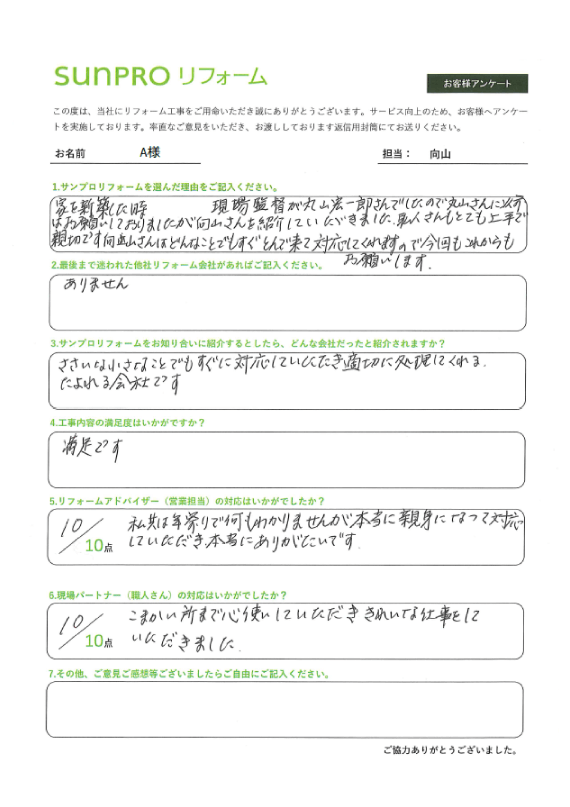 sunpro リフォーム
お客様アンケート
この度は、当社にリフォーム工事をご用命いただき誠にありがとうございます。サービス向上のため、お客様へアンケー
トを実施しております。率直なご意見をいただき、お渡ししております返信用封筒にてお送りください。
お名前 A様 担当： 向山
1.サンプロリフォームを選んだ理由をご記入ください。
家を新築した時 現場監督が丸山宏一郎さんでしたので丸山さんに以前
はお願いしておりましたが向山さんを紹介していただきました、職人さんもとても上手で
親切です向山さんはどんなことでもすぐとんで来て対応してくれますので今回もこれからも
お願いします.
2.最後まで迷われた他社リフォーム会社があればご記入ください。
ありません
3.サンプロリフォームをお知り合いに紹介するとしたら、どんな会社だったと紹介されますか？
ささいな小さなことでもすぐに対応していただき適切に処理してくれる.
たよれる会社です
4.工事内容の満足度はいかがですか？
満足です
5.リフォームアドバイザー（営業担当）の対応はいかがでしたか？
10/10点
私共は年寄りで何もわかりませんが本当に親身になって対応
していただき本当にありがたいです.
6.現場パートナー（職人さん）の対応はいかがでしたか？
10/10点
こまかい所まで心使いしていただききれいな仕事をして
いただきました.
7.その他、ご意見ご感想等ございましたらご自由にご記入ください。
ご協力ありがとうございました。